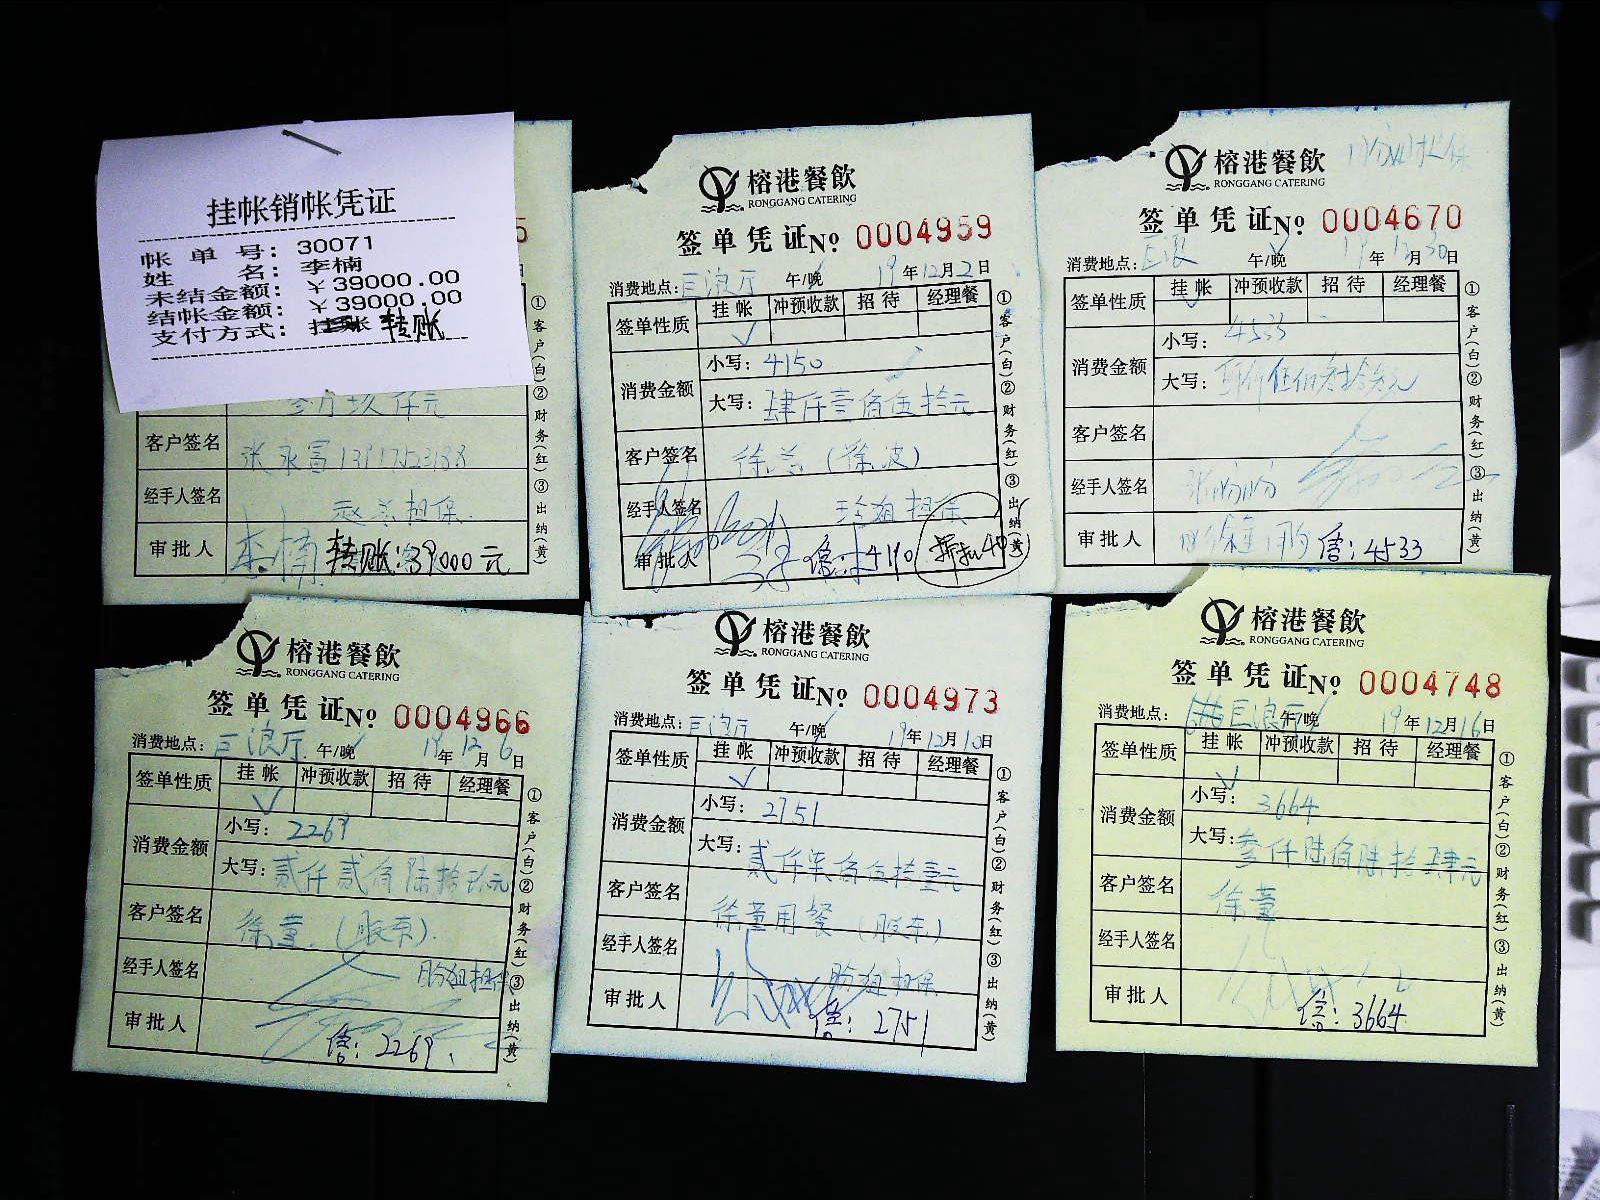 挂帐销帐凭证
帐单号：30071
姓名：李楠
未结金额：￥39000.00
结帐金额：￥39000.00
支付方式：转账
5
叁万玖仟元
客户签名 张永富
经手人签名 担保
审批人 李楠 转账：39000元
①客户(白)②财务(红)③出纳(黄)
榕港餐飲
RONGGANG CATERING
签单凭证№ 0004959
消费地点：巨浪厅 午/晚 19年12月2日
签单性质 挂帐 冲预收款 招待 经理餐
✓
消费金额 小写：4150
大写：肆仟壹佰伍拾元
客户签名 徐总（徐波）
经手人签名 担保
审批人 信：4110 折扣40
①客户(白)②财务(红)③出纳(黄)
榕港餐飲
RONGGANG CATERING
签单凭证№ 0004670
消费地点：巨浪 午/晚 19年12月30日
签单性质 挂帐 冲预收款 招待 经理餐
✓
消费金额 小写：4533
大写：肆仟伍佰叁拾叁元
客户签名
经手人签名
审批人 信：4533
①客户(白)②财务(红)③出纳(黄)
榕港餐飲
RONGGANG CATERING
签单凭证№ 0004966
消费地点：巨浪厅 午/晚 19年12月6日
签单性质 挂帐 冲预收款 招待 经理餐
✓
消费金额 小写：2269
大写：贰仟贰佰陆拾玖元
客户签名 徐董（股东）
经手人签名 肦姐担保
审批人 信：2269
①客户(白)②财务(红)③出纳(黄)
榕港餐飲
RONGGANG CATERING
签单凭证№ 0004973
消费地点：巨浪厅 午/晚 19年12月10日
签单性质 挂帐 冲预收款 招待 经理餐
✓
消费金额 小写：2751
大写：贰仟柒佰伍拾壹元
客户签名 徐董用餐（股东）
经手人签名 肦姐担保
审批人 信：2751
①客户(白)②财务(红)③出纳(黄)
榕港餐飲
RONGGANG CATERING
签单凭证№ 0004748
消费地点：巨浪厅 午/晚 19年12月16日
签单性质 挂帐 冲预收款 招待 经理餐
✓
消费金额 小写：3664
大写：叁仟陆佰陆拾肆元
客户签名 徐董
经手人签名
审批人 信：3664
①客户(白)②财务(红)③出纳(黄)